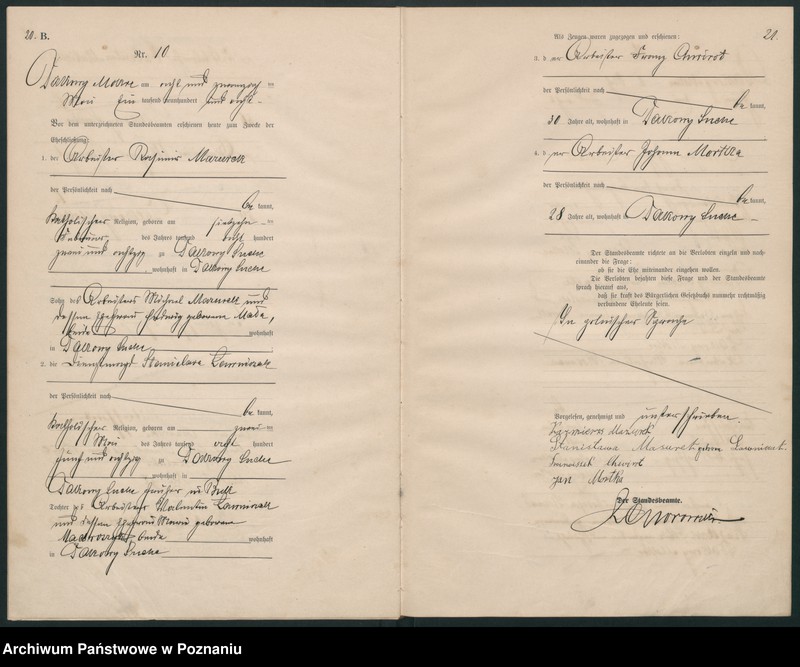 20. B.
Nr. 10
Dakowy Mokre am acht und zwanzigsten
Mai Ein tausend neunhundert und acht
Vor dem unterzeichneten Standesbeamten erschienen heute zum Zwecke der
Eheschließung:
1. der Arbeiter Kasimir
der Persönlichkeit nach
be kannt,
katholischer Religion, geboren am siebzehnten
Februar des Jahres tausend acht hundert
zwei und achtzig zu Dakowy Suche
, wohnhaft in Dakowy Suche
Sohn des Arbeiters Michael und
dessen Ehefrau Hedwig geborene
beide wohnhaft
in Dakowy Suche
2. die Dienstmagd Stanislava
der Persönlichkeit nach
be kannt,
katholischer Religion, geboren am
Mai des Jahres tausend acht hundert
fünf und achtzig zu Dakowy Suche
, wohnhaft in
Dakowy Suche früher in Buk
Tochter des Arbeiters Valentin
und dessen Ehefrau Maria geborene
beide wohnhaft
in Dakowy Suche
21.
Als Zeugen waren zugezogen und erschienen:
3. der Arbeiter Franz
der Persönlichkeit nach
be kannt,
30 Jahre alt, wohnhaft in Dakowy Suche
4. der Arbeiter Johann
der Persönlichkeit nach
be kannt,
28 Jahre alt, wohnhaft in Dakowy Suche
Der Standesbeamte richtete an die Verlobten einzeln und nach-
einander die Frage:
ob sie die Ehe miteinander eingehen wollen.
Die Verlobten bejahten diese Frage und der Standesbeamte
sprach hierauf aus,
daß sie kraft des Bürgerlichen Gesetzbuchs nunmehr rechtmäßig
verbundene Eheleute seien.
In polnischer Sprache
Vorgelesen, genehmigt und unterschrieben.
Kazmierz
Stanislawa geboren
Franciszek
Jan
Der Standesbeamte.
Archiwum Państwowe w Poznaniu